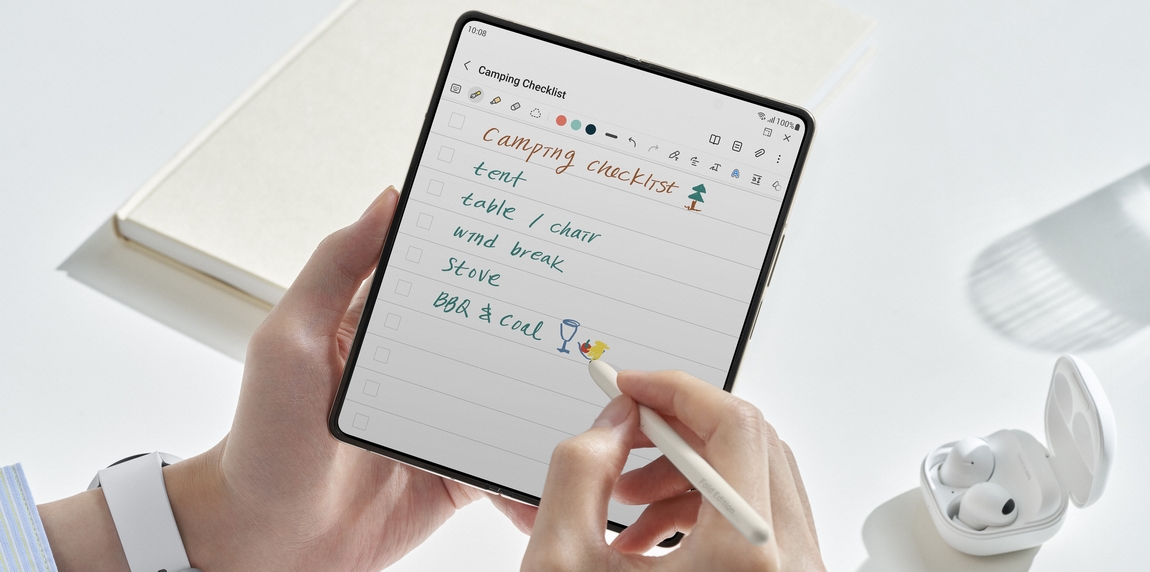 10:08
100%
Camping Checklist
Camping checklist
tent
table / chair
wind break
Stove
BBQ & Coal
Fold Edition